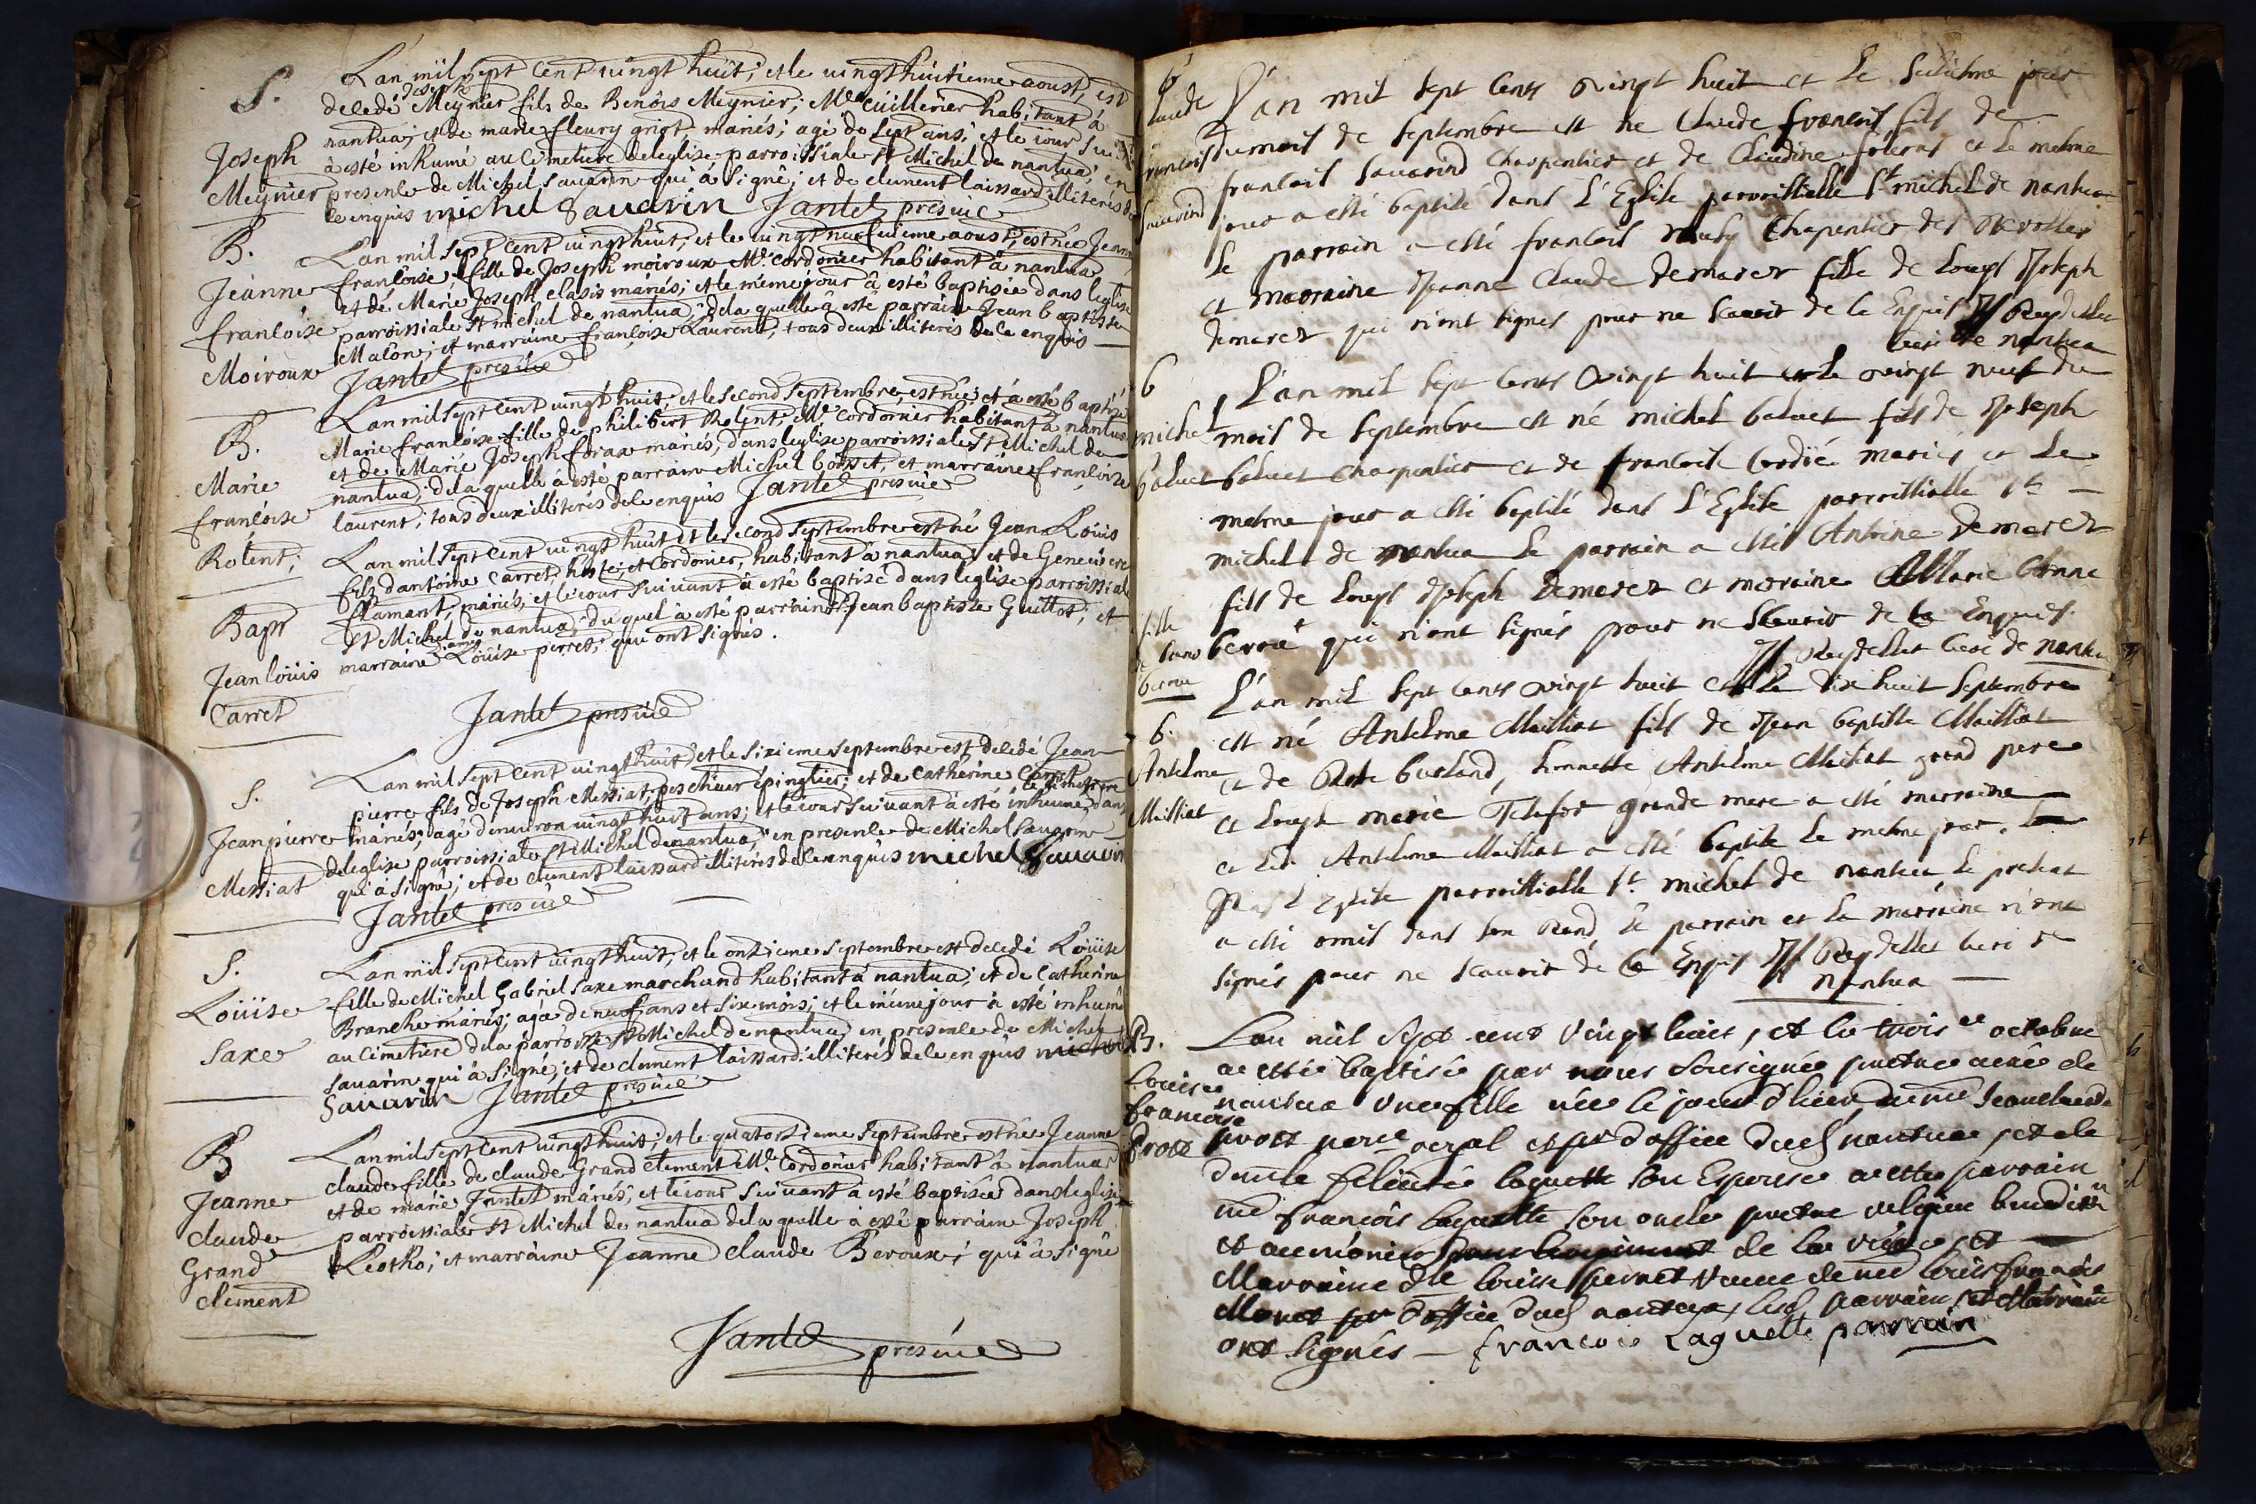 S.
Joseph
Meynier
L'an mil sept cent vingt huit; et le vingt huitieme aoust, est
decedé Joseph Meynier fils de Benois Meynier; Me cuillerier habitant à
nantua; et de marie fleury griot mariés; agé de sept ans; et le iour suiv
à esté inhumé au cimetiere de leglise parroissiale St Michel de nantua; en
presence de Michel Sauarin qui à signé; et de clement laissard illiterés de
ce enquis michel Sauarin Jantet presvic
B.
Jeanne
francoise
Moiroux
Lan mil sept cent vingt huit; et le vingt neufuieme aoust; est née Jeanne
francoise fille de Joseph moiroux Me cordonier habitant à nantua,
et de Marie Joseph clasis mariés; et le méme iour à esté baptisée dans leglise
parroissiale St michel de nantua; de la quelle à esté parraine Jean baptiste
Malon; et marraine francoise Laurent; tous deux illiterés de ce enquis
Jantet presvic
B.
Marie
francoise
Rolent;
Lan mil sept cent vingt huit; et le second septembre, est née et à esté baptisé
Marie francoise fille de philibert Rolent, Me cordonier habitant à nantua
et de Marie Joseph forax mariés, dans leglise parroissiale St Michel de
nantua; de la quelle à esté parrain Michel boisset, et marraine francoise
laurent; tous deux illiterés de ce enquis Jantet presvic
Bapt
Jean loüis
Carret
Lan mil sept cent vingt huit et le second septembre est né Jean Loüis
fils dantoine carret, hoste; et cordonier, habitant à nantua; et de Genevieve
flamant, mariés, et le iour suivant à esté baptisé dans leglise parroissial
St Michel de nantua; du quel à esté parrain Jean baptiste Guillot; et
marraine Loüise perret; qui ont signés.
Jantet presvic
S.
Jean pierre
Messiat
Lan mil sept cent vingt huit et le sixieme septembre est decedé Jean
pierre fils de Joseph Messiat, pescheur épinglier; et de Catherine Carret
mariés; agé denviron vingt huit ans; et le iour suivant à esté inhumé dans le cimetiere
de leglise parroissiale St Michel de nantua; en presence de Michel Sauarin
qui à signé; et de clement laissard illiterés de ce enquis michel Sauarin
Jantet presvic
S.
Loüise
Saxe
Lan mil sept cent vingt huit, et le onzieme septembre est decedé Loüise
fille de Michel Gabriel Saxe marchand habitant à nantua; et de Catherine
Branche mariés; agée de neuf ans et six mois; et le méme jour à esté inhumé
au cimetiere de la parroisse St Michel de nantua; en presence de Michel
Sauarin qui à signé; et de clement laissard illiterés de ce enquis michel
Sauarin Jantet presvic
B
Jeanne
claude
Grand
clement
Lan mil sept cent vingt huit; et le quatorzieme septembre est née Jeanne
claude fille de claude Grand clement Me Cordonier habitant à nantua
et de marie Jantet mariés; et le iour suivant à esté baptisée dans leglise
parroissiale St Michel de nantua de la quelle à esté parraine Joseph
Leotho; et marraine Jeanne claude Beroux; qui à signé
Jantet presvic
6
Claude
francois
Sauarind
L'an mil sept cents vingt huit et le seisiesme jour
du mois de septembre est né Claude francois fils de
francois Sauarind charpentier et de Claudine fréras et le mesme
jour a esté baptisé dans L'Eglise parroissialle St michel de nantua
Le parrain a esté francois charpentier des
et marraine Jeanne Claude demarez fille de Louys Joseph
demarez qui n'ont signés pour ne scavoir de ce Enquis Reydellet
curé de nantua
6
michel
baluet
L'an mil sept cents vingt huit et le vingt neuf du
mois de septembre est né michel baluet fils de Joseph
baluet charpentier et de francoise mariés et le
mesme jour a esté baptisé dans L'Eglise parroissialle St
michel de nantua Le parrain a esté Antoine demarez
fils de Louys Joseph demarez et marraine Marie Anne
qui n'ont signés pour ne scavoir de ce Enquis
Reydellet curé de nantua
6.
Antelme
Mailliat
L'an mil sept cents vingt huit et le dix huit septembre
est né Antelme Mailliat fils de Jean baptiste Mailliat
et de burland, honneste Antelme Mailliat grand pere
et Louyse marie grande mere a esté marraine
et led. Antelme Mailliat a esté baptisé le mesme jour
dans L'Eglise parroissialle St michel de nantua le present
a esté omis dans son rand, le parrain et la marraine n'ont
signés pour ne scavoir de ce Enquis Reydellet curé de
nantua
B.
Louise
francoise
Prost
Lan mil sept cent vingt huict, et le troise octobre
a estée baptisée par nous soussignée prettre curé de
nantua une fille née le jour d'hier de me Jean claude
prost nore royal et pr d'office dud nantua, et de
dame felicitée laguette son Espouse a estée parrain
me francois laguette son oncle prettre religieux benedictn
et aumônier de la et
Marraine dlle louise pernet veuve de me louis francois
Monet pr d'office dud nantua, lesd parrain et Marraine
ont signés – francois Laguette parrain